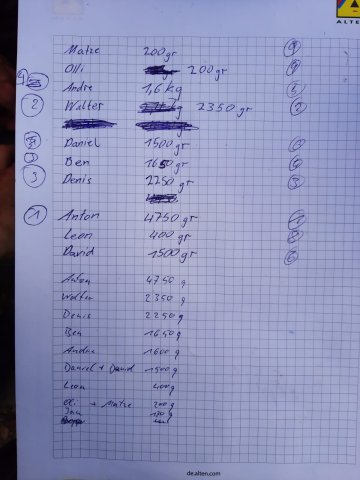 ALTEN
Matze 200gr 9
Olli 200gr 9
4 Andre 1,6 kg 5
2 Walter 2350 gr 2
Daniel 1500 gr
Ben 1650 gr
3 Denis 2250 gr 3
1 Anton 4750 gr 1
Leon 400 gr 8
David 1500 gr 6
Anton 4750 g
Walter 2350 g
Denis 2250 g
Ben 1650 g
Andre 1600 g
Daniel + David 1500 g
Leon 400 g
Olli + Matze 200 g
170 g
de.alten.com